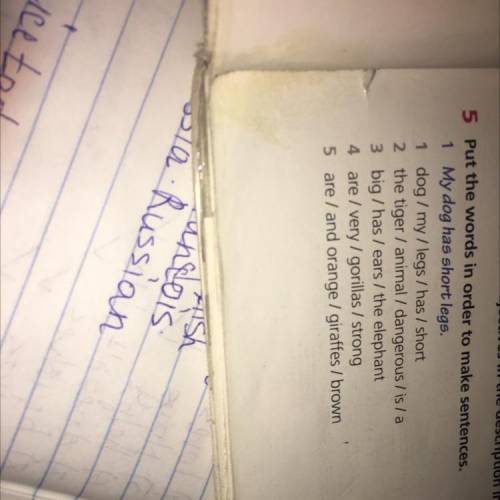 5 Put the words in order to make sentences.
1 My dog has short legs.
1 dog / my / legs / has / short
2 the tiger / animal / dangerous / is / a
3 big / has / ears / the elephant
4 are / very / gorillas / strong
5 are / and orange / giraffes / brown
Russian